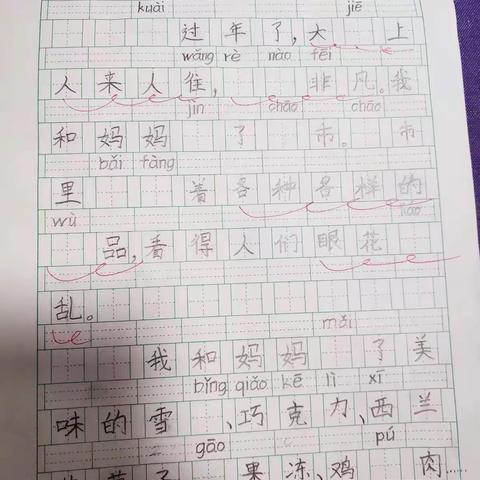 kuài jiē
过年了,大 上
wǎng rè nào fēi
人来人往, 非凡。我
jìn chāo chāo
和妈妈 了 市。市
bǎi fàng
里 着各种各样的
wù liáo
品,看得人们眼花
乱。
mǎi
我和妈妈 了美
bǐng qiǎo kē lì xī
味的雪 、巧克力、西兰
gāo pú
果冻、鸡 肉……